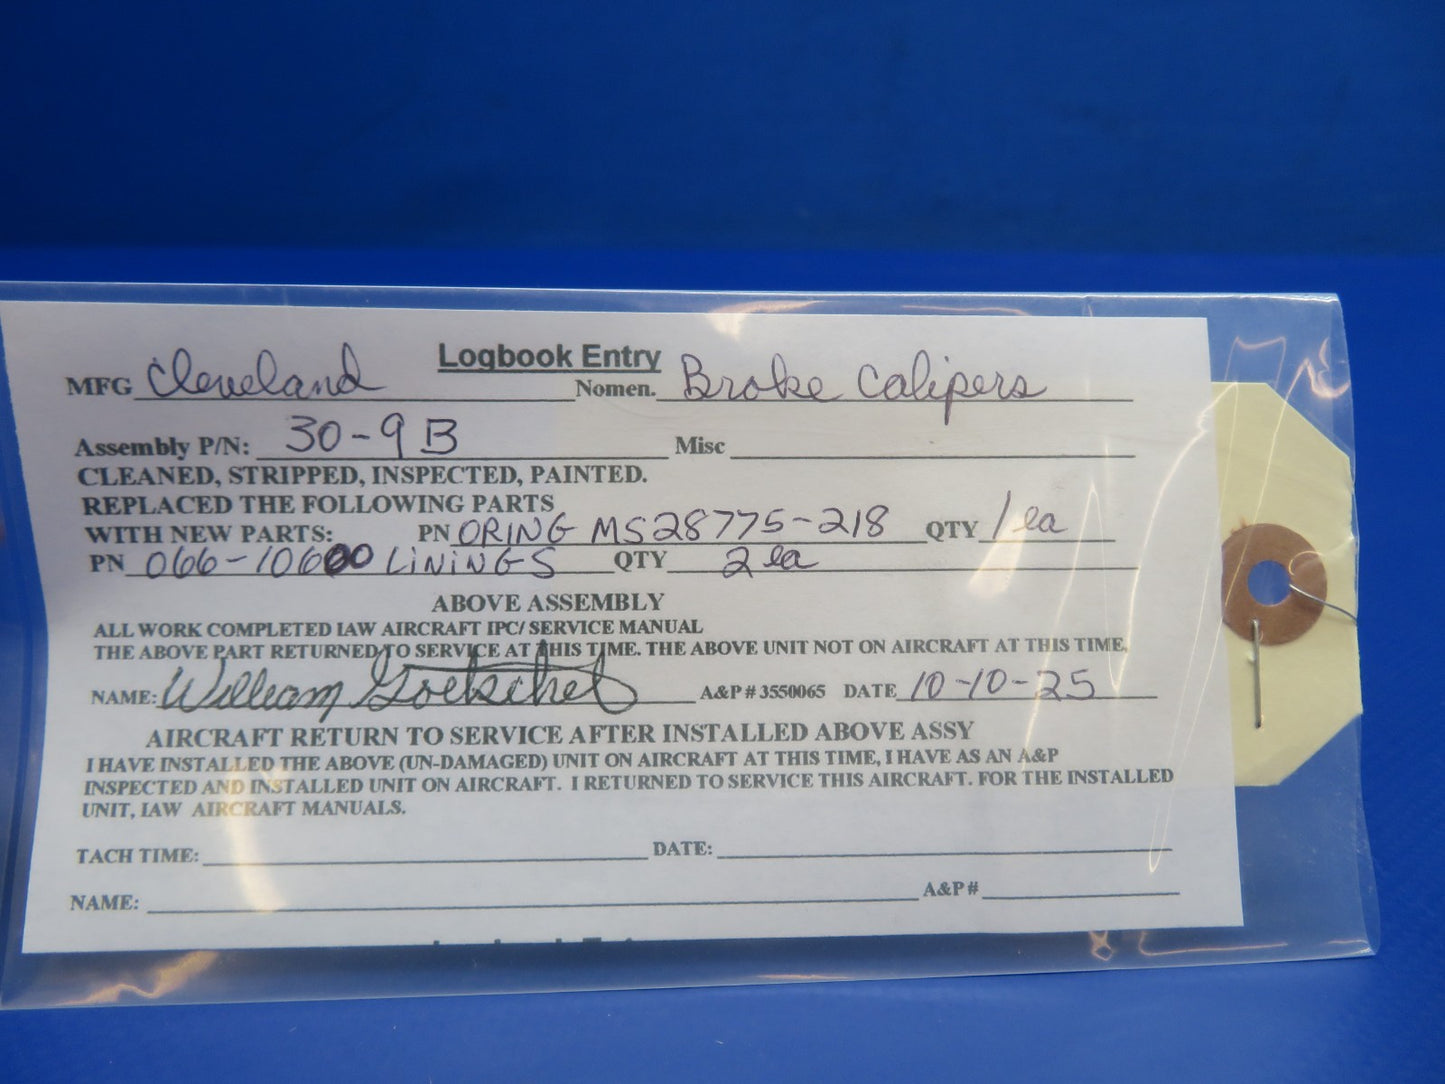 Logbook Entry
MFG Cleveland Nomen. Brake Calipers
Assembly P/N: 30-9B Misc
CLEANED, STRIPPED, INSPECTED, PAINTED.
REPLACED THE FOLLOWING PARTS
WITH NEW PARTS: PN ORING MS28775-218 QTY 1 ea
PN 066-10600 LININGS QTY 2 ea
ABOVE ASSEMBLY
ALL WORK COMPLETED IAW AIRCRAFT IPC/ SERVICE MANUAL
THE ABOVE PART RETURNED TO SERVICE AT THIS TIME. THE ABOVE UNIT NOT ON AIRCRAFT AT THIS TIME.
NAME: William Goetschel A&P # 3550065 DATE 10-10-25
AIRCRAFT RETURN TO SERVICE AFTER INSTALLED ABOVE ASSY
I HAVE INSTALLED THE ABOVE (UN-DAMAGED) UNIT ON AIRCRAFT AT THIS TIME, I HAVE AS AN A&P
INSPECTED AND INSTALLED UNIT ON AIRCRAFT. I RETURNED TO SERVICE THIS AIRCRAFT. FOR THE INSTALLED
UNIT, IAW AIRCRAFT MANUALS.
TACH TIME: DATE:
NAME: A&P #